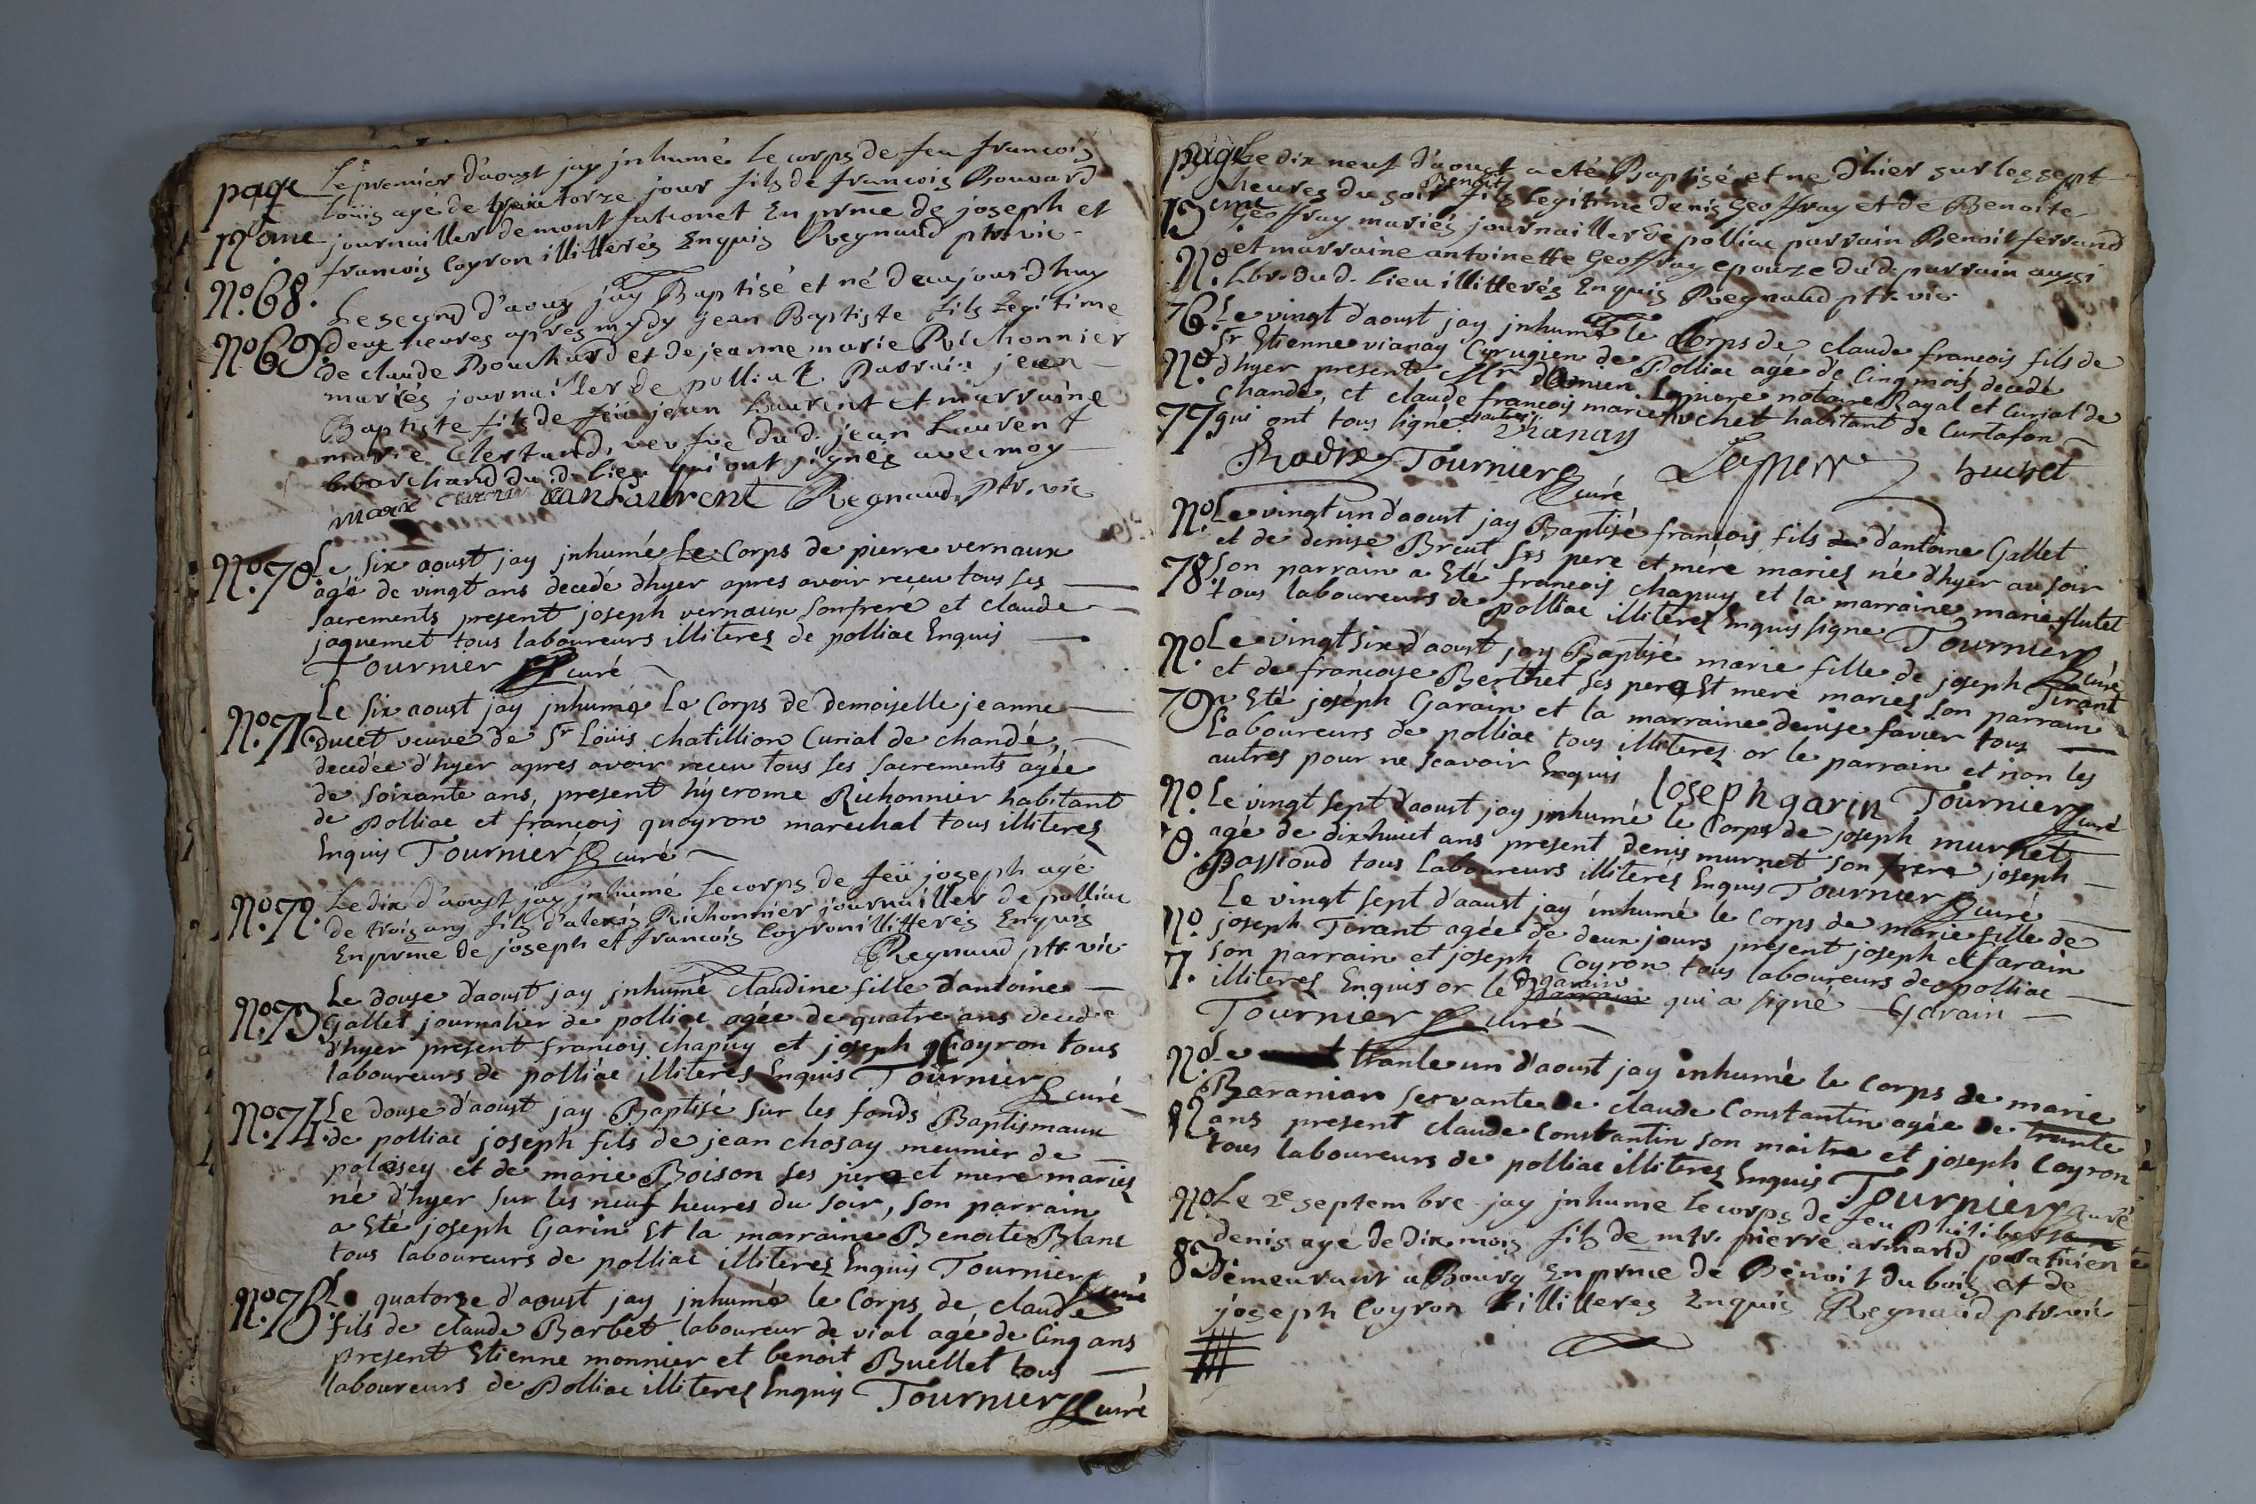 page
12eme
No. 68.
Le premier d'aoust jay jnhumé le corps de feu francois
Loüis agé de quatorze jour fils de francois Bouvard
journaillier de montfationet En prnce de joseph et
francois Coyron illitterés Enquis Regnaud ptr. vic.
No. 69.
Le second d'aous jay Baptisé et né deaujourdhuy
deux heures apres mydy jean Baptiste fils Legitime
de claude Bouchard et de jeanne marie Richonnier
mariés journaillier de polliat Parrain jean
Baptiste fils de feü jean Laurent et marraine
marie Clertand, veufve dud. jean Laurent
marchand dud. lieu qui ont signés avec moy
marie jean Laurent Regnaud, ptr. vic
No. 70
Le six aoust jay jnhumé Le Corps de pierre vernaux
agé de vingt ans decedé d'hyer apres avoir receu tous ses
sacrements present joseph vernaux son freré et claude
jaquemet tous laboureurs illiterez de polliac Enquis
Tournier curé
No. 71.
Le six aoust jay jnhumé Le Corps de Demoiselle jeanne
ducet veuve de Sr Loüis chatillion Curial de chandé,
decedée d'hyer apres avoir receu tous ses sacrements agée
de soixante ans, present hyerome Richonnier habitant
de Polliac et françois quoyron marechal tous illiterez
Enquis Tournier curé
No. 72.
Le dix d'aoust jay jnhumé Le corps de feü joseph agé
de trois ans fils d'alexis Richonnier journaillier de polliac
En prnce de joseph et francois Coyron illitterés Enquis
Regnaud ptr. vic
No. 73
Le douse d'aoust jay jnhumé claudine fille d'antoine
Gallet journalier de polliac agée de quatre ans decedée
d'hyer present francois chapuy et joseph Coyron tous
laboureurs de polliac illiterez Enquis Tournier
curé
No. 74.
Le douse d'aoust jay Baptisé sur les fonds Baptismaux
de polliac joseph fils de jean chosay meunier de
polaisey et de marie Boison ses pere et mere mariez
né d'hyer sur les neuf heures du soir, son parrain
a Eté joseph Garin Et la marraine Benoite Blanc
tous laboureurs de polliac illiterez Enquis Tournier curé
No. 75.
Le quatorze d'aoust jay jnhumé le Corps de claude
fils de claude Barbet laboureur de vial agé de Cinq ans
present Etienne monnier et benoit Buellet tous
laboureurs de Polliac illiterez Enquis Tournier curé
page
13eme
No.
76.
Le dix neuf d'aoust a eté Baptisé et né d'hier sur les sept
Benoit
heures du soir fils Legitime denis Geoffray et de Benoite
Geoffray mariés journaillier de polliac parrain Benoit ferrand
et marraine antoinette Geoffray epouze dud. parrain aussi
Lbr. dud. lieu illitterés Enquis Regnaud ptr. vic.
No.
77
Le vingt d'aoust jay jnhumé le Corps de claude francois fils de
Sr Etienne vianay Cyrugien de Polliac agé de Cinq mois decedé
d'hyer presents Mr notaire Royal et Curial de
Chandé, et claude francois marie huchet habitant de Curtafon
qui ont tous signé
vianay
Tournier huchet
curé
No.
78.
Le vingt un d'aoust jay Baptisé francois fils de d'antoine Gallet
et de denise Breut ses pere et mére mariez né d'hyer au soir
son parrain a Eté francois chapuy et la marraine marie flutet
tous laboureurs de polliac illiterez Enquis signe Tournier
curé
No.
79
Le vingt six d'aoust jay Baptisé marie fille de joseph Tirant
et de francoise Berthet ses pere Et mere mariez son parrain
a Eté joseph Garain et la marraine denise favier tous
Laboureurs de polliac tous illiterez or le parrain et non les
autres pour ne scavoir Enquis Joseph garin Tournier curé
No.
0.
Le vingt sept d'aoust jay jnhumé le Corps de joseph murnet
agé de dixhuit ans present denis murnet son frere joseph
passioud tous Laboureurs illiterés Enquis Tournier curé
No.
71.
Le vingt sept d'aoust jay inhumé le Corps de marie fille de
joseph Tirant agée de deux jours present joseph Garain
son parrain et joseph Coyron tous laboureurs de polliac
illiterez Enquis or le garain parrain qui a signé Garain
Tournier curé
No.
82
Le trante un d'aoust jay inhumé le Corps de marie
Baranian servante de claude Constantin agée de trante
ans present claude Constantin son maitre et joseph Coyron
tous laboureurs de polliac illiterez Enquis Tournier curé
No.
83
Le 2e septembre jay jnhumé le corps de feu philibert
denis agé de dix mois fils de mtr. pierre armand praticien
demeurant a Bourg En prnce de Benoit du bois et de
joseph Coyron illitterez Enquis Regnaud ptr. vic